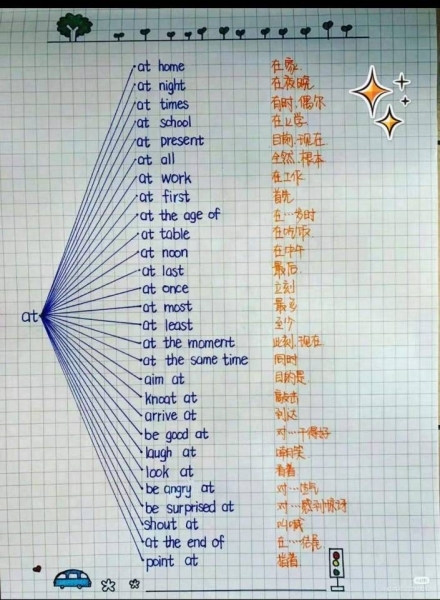 at home 在家.
at night 在夜晚.
at times 有时, 偶尔
at school 在上学.
at present 目前, 现在
at all 全然. 根本
at work 在工作
at first 首先
at the age of 在…岁时
at table 在吃饭.
at noon 在中午
at last 最后.
at once 立刻
at most 最多
at least 至少
at
at the moment 此刻, 现在
at the same time 同时
aim at 目的是
knoat at 敲击
arrive at 到达
be good at 对…干得好
laugh at 嘲笑
look at 看着
be angry at 对…生气
be surprised at 对…感到惊讶
shout at 叫喊
at the end of 在…结尾
point at 指着